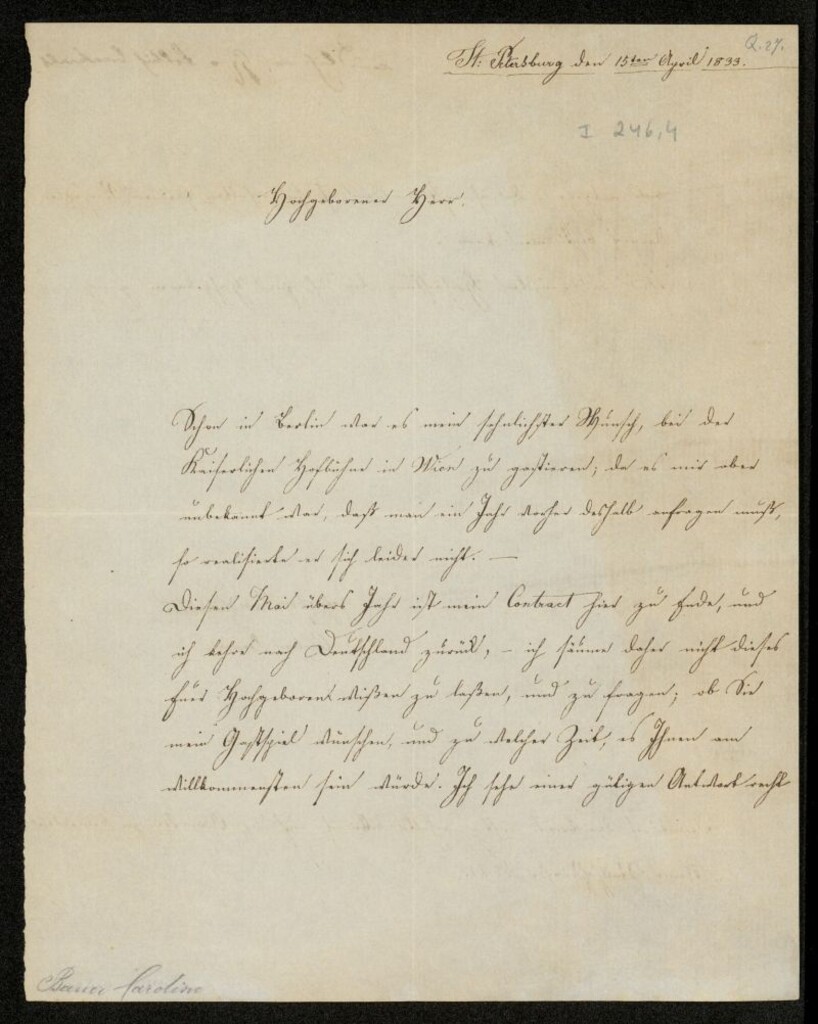 Q. 27.
St. Petersburg den 15ten April 1833.
I 246,4
Hochgeborener Herr!
Schon in Berlin war es mein sehnlichster Wunsch, bei der
Kaiserlichen Hofbühne in Wien zu gastieren; da es mir aber
unbekannt war, daß man ein Jahr vorher deshalb anfragen muß,
so realisierte er sich leider nicht. —
Diesen Mai übers Jahr ist mein Contract hier zu Ende, und
ich kehre nach Deutschland zurück, – ich säume daher nicht dieses
Euer Hochgeboren wißen zu laßen, und zu fragen; ob Sie
mein Gastspiel wünschen, und zu welcher Zeit, es Ihnen am
willkommensten sein würde. Ich sehe einer gütigen Antwort recht
Bauer Caroline